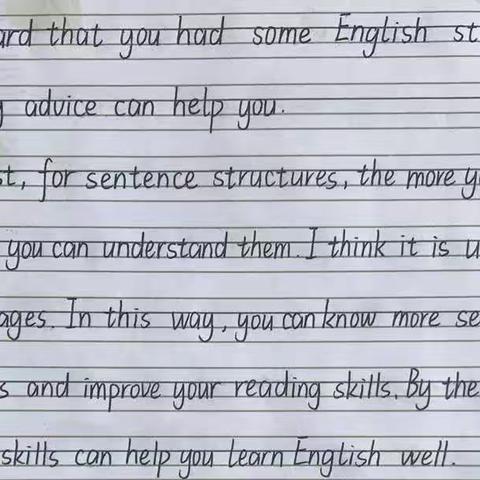 ard that you had some English st
advice can help you.
st, for sentence structures, the more y
you can understand them. I think it is u
ages. In this way, you can know more se
s and improve your reading skills. By the
skills can help you learn English well.